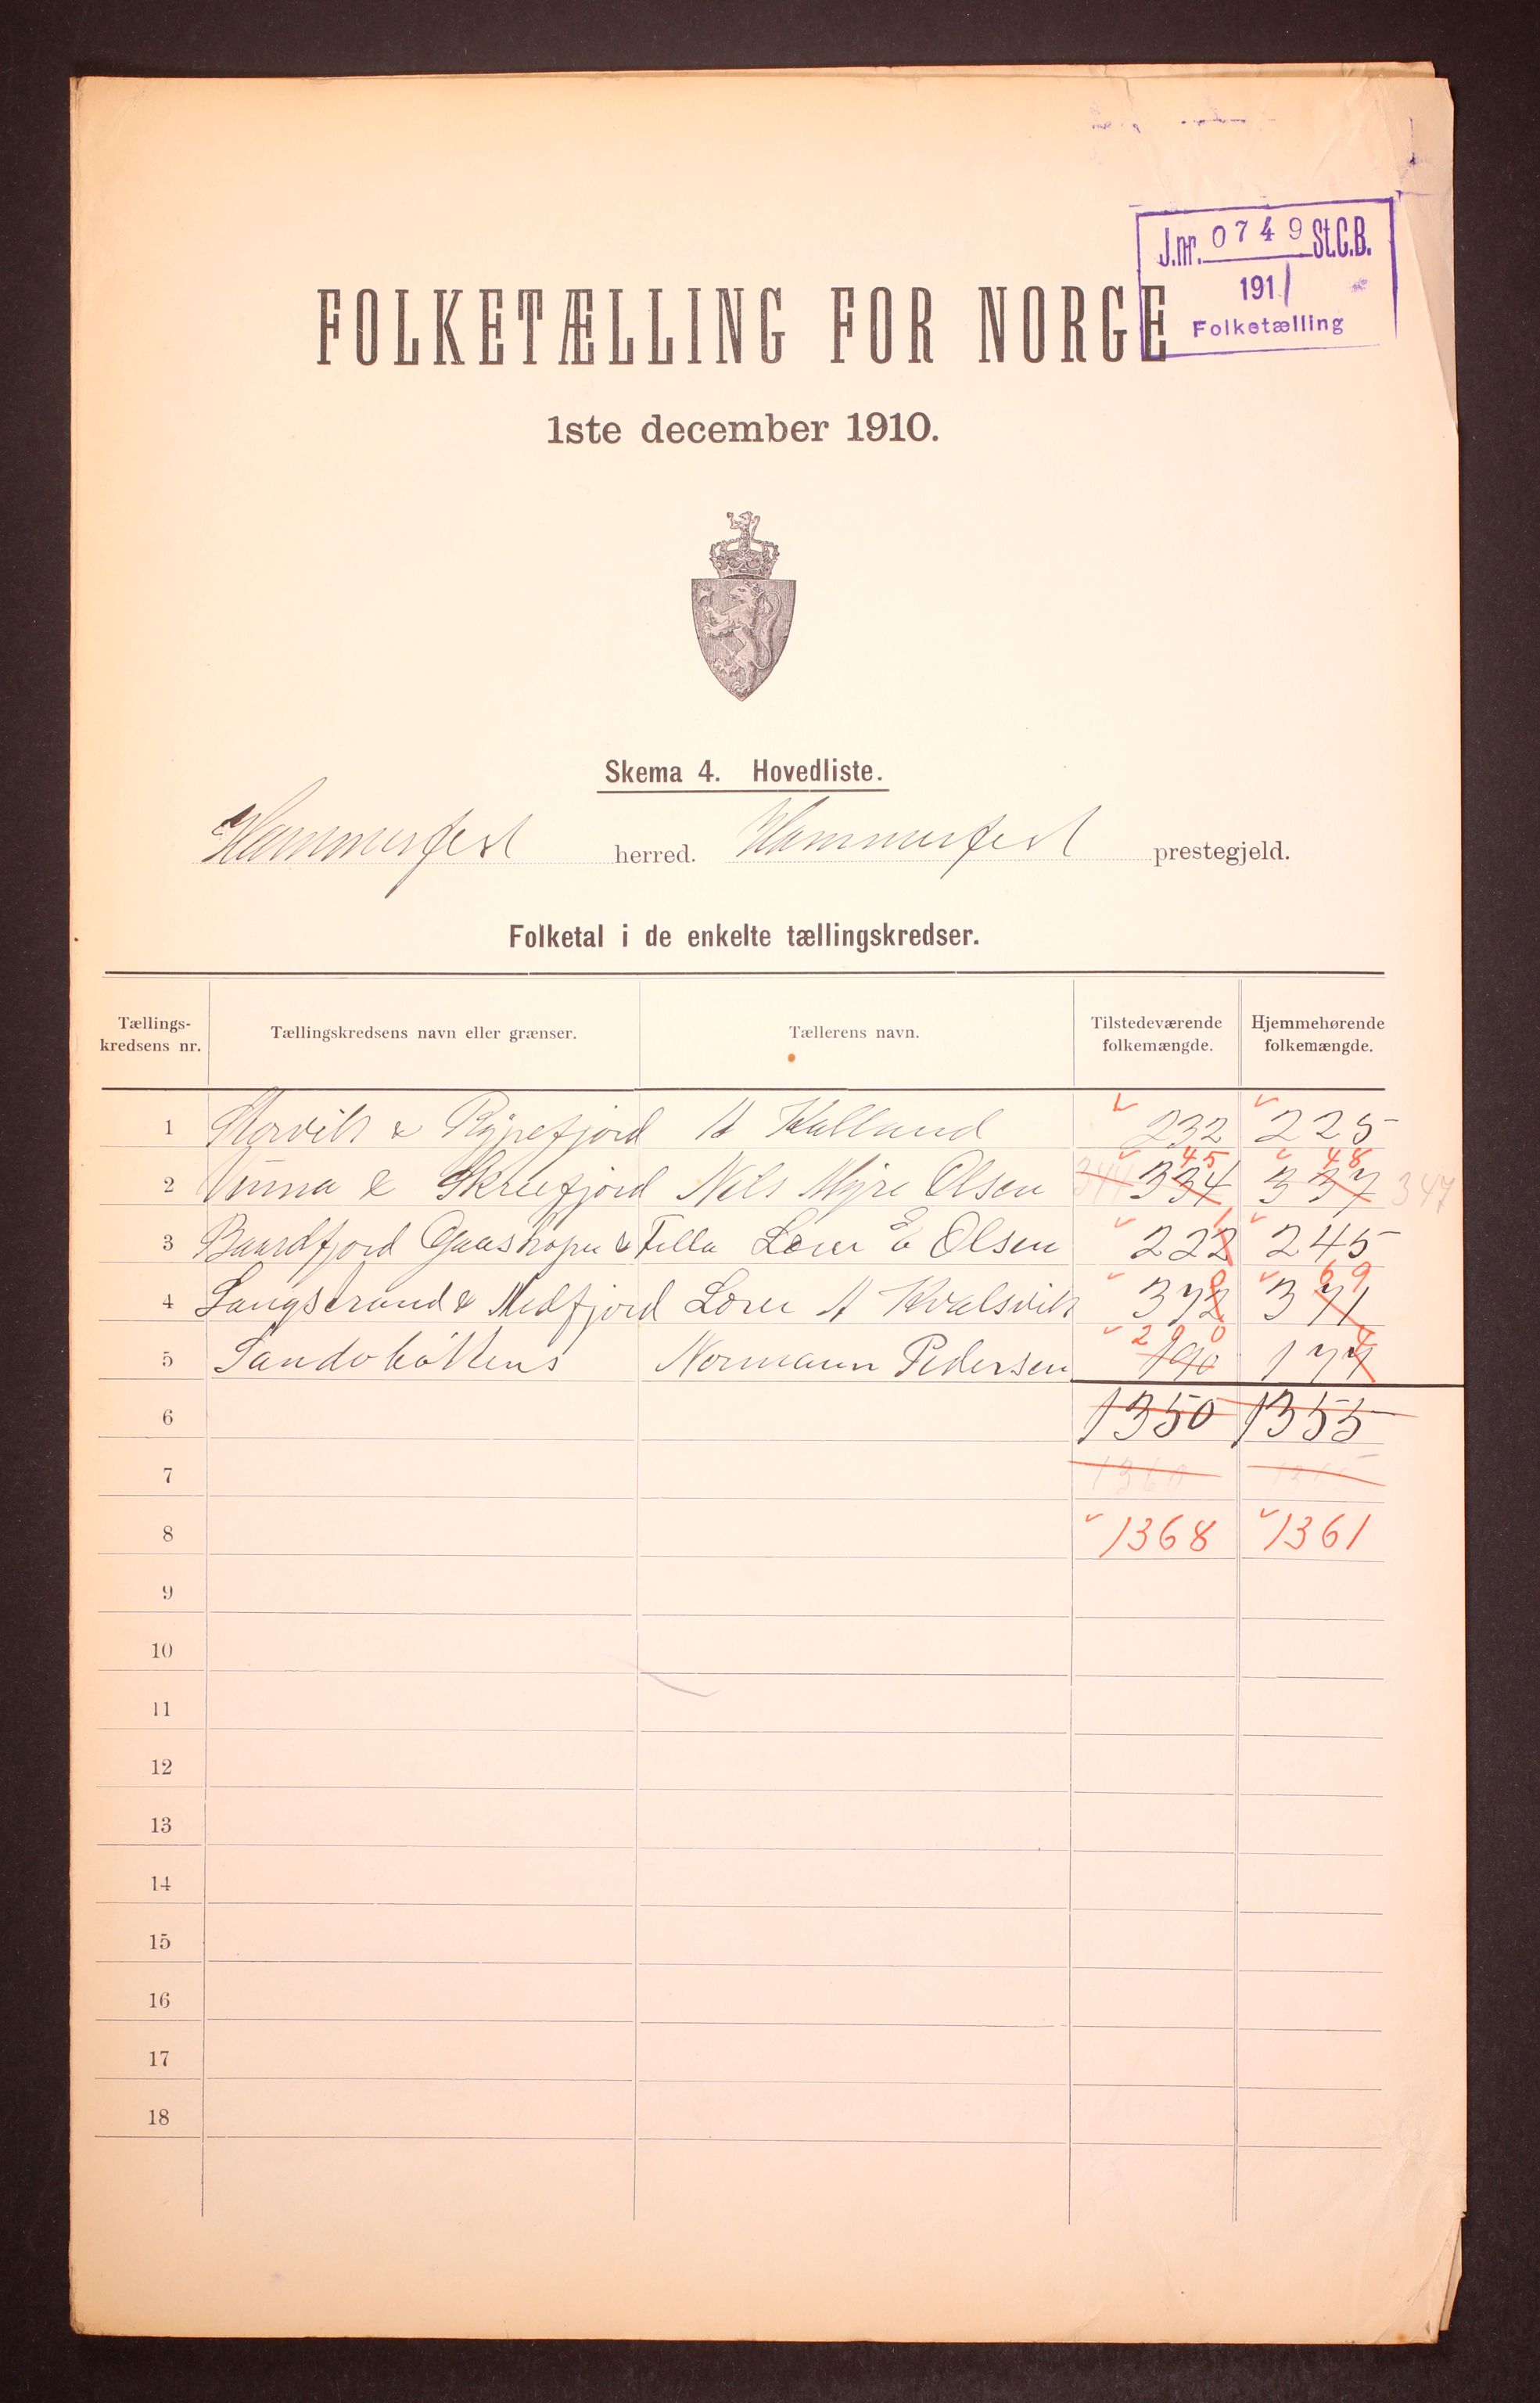 J.nr. 0749 St.C.B.
1911
Folketælling
FOLKETÆLLING FOR NORGE
1ste december 1910.
Skema 4. Hovedliste.
Hammerfest herred. Hammerfest prestegjeld.
Folketal i de enkelte tællingskredser.
Tællings-kredsens nr. Tællingskredsens navn eller grænser. Tællerens navn. Tilstedeværende folkemængde. Hjemmehørende folkemængde.
1 Storvik & Rypefjord A Kalland 232 225
45 48
2 & Nils Myre Olsen 344 334 337 347
1
3 Baardfjord Gaashopen & Fella Lærer E Olsen 222 245
0 69
4 Langstrand & Medfjord Lærer A Kvalsvik 372 371
200 4
5 Sandøbottens Normann Pedersen 190 177
6 1350 1355
7 1360
8 1368 1361
9
10
11
12
13
14
15
16
17
18